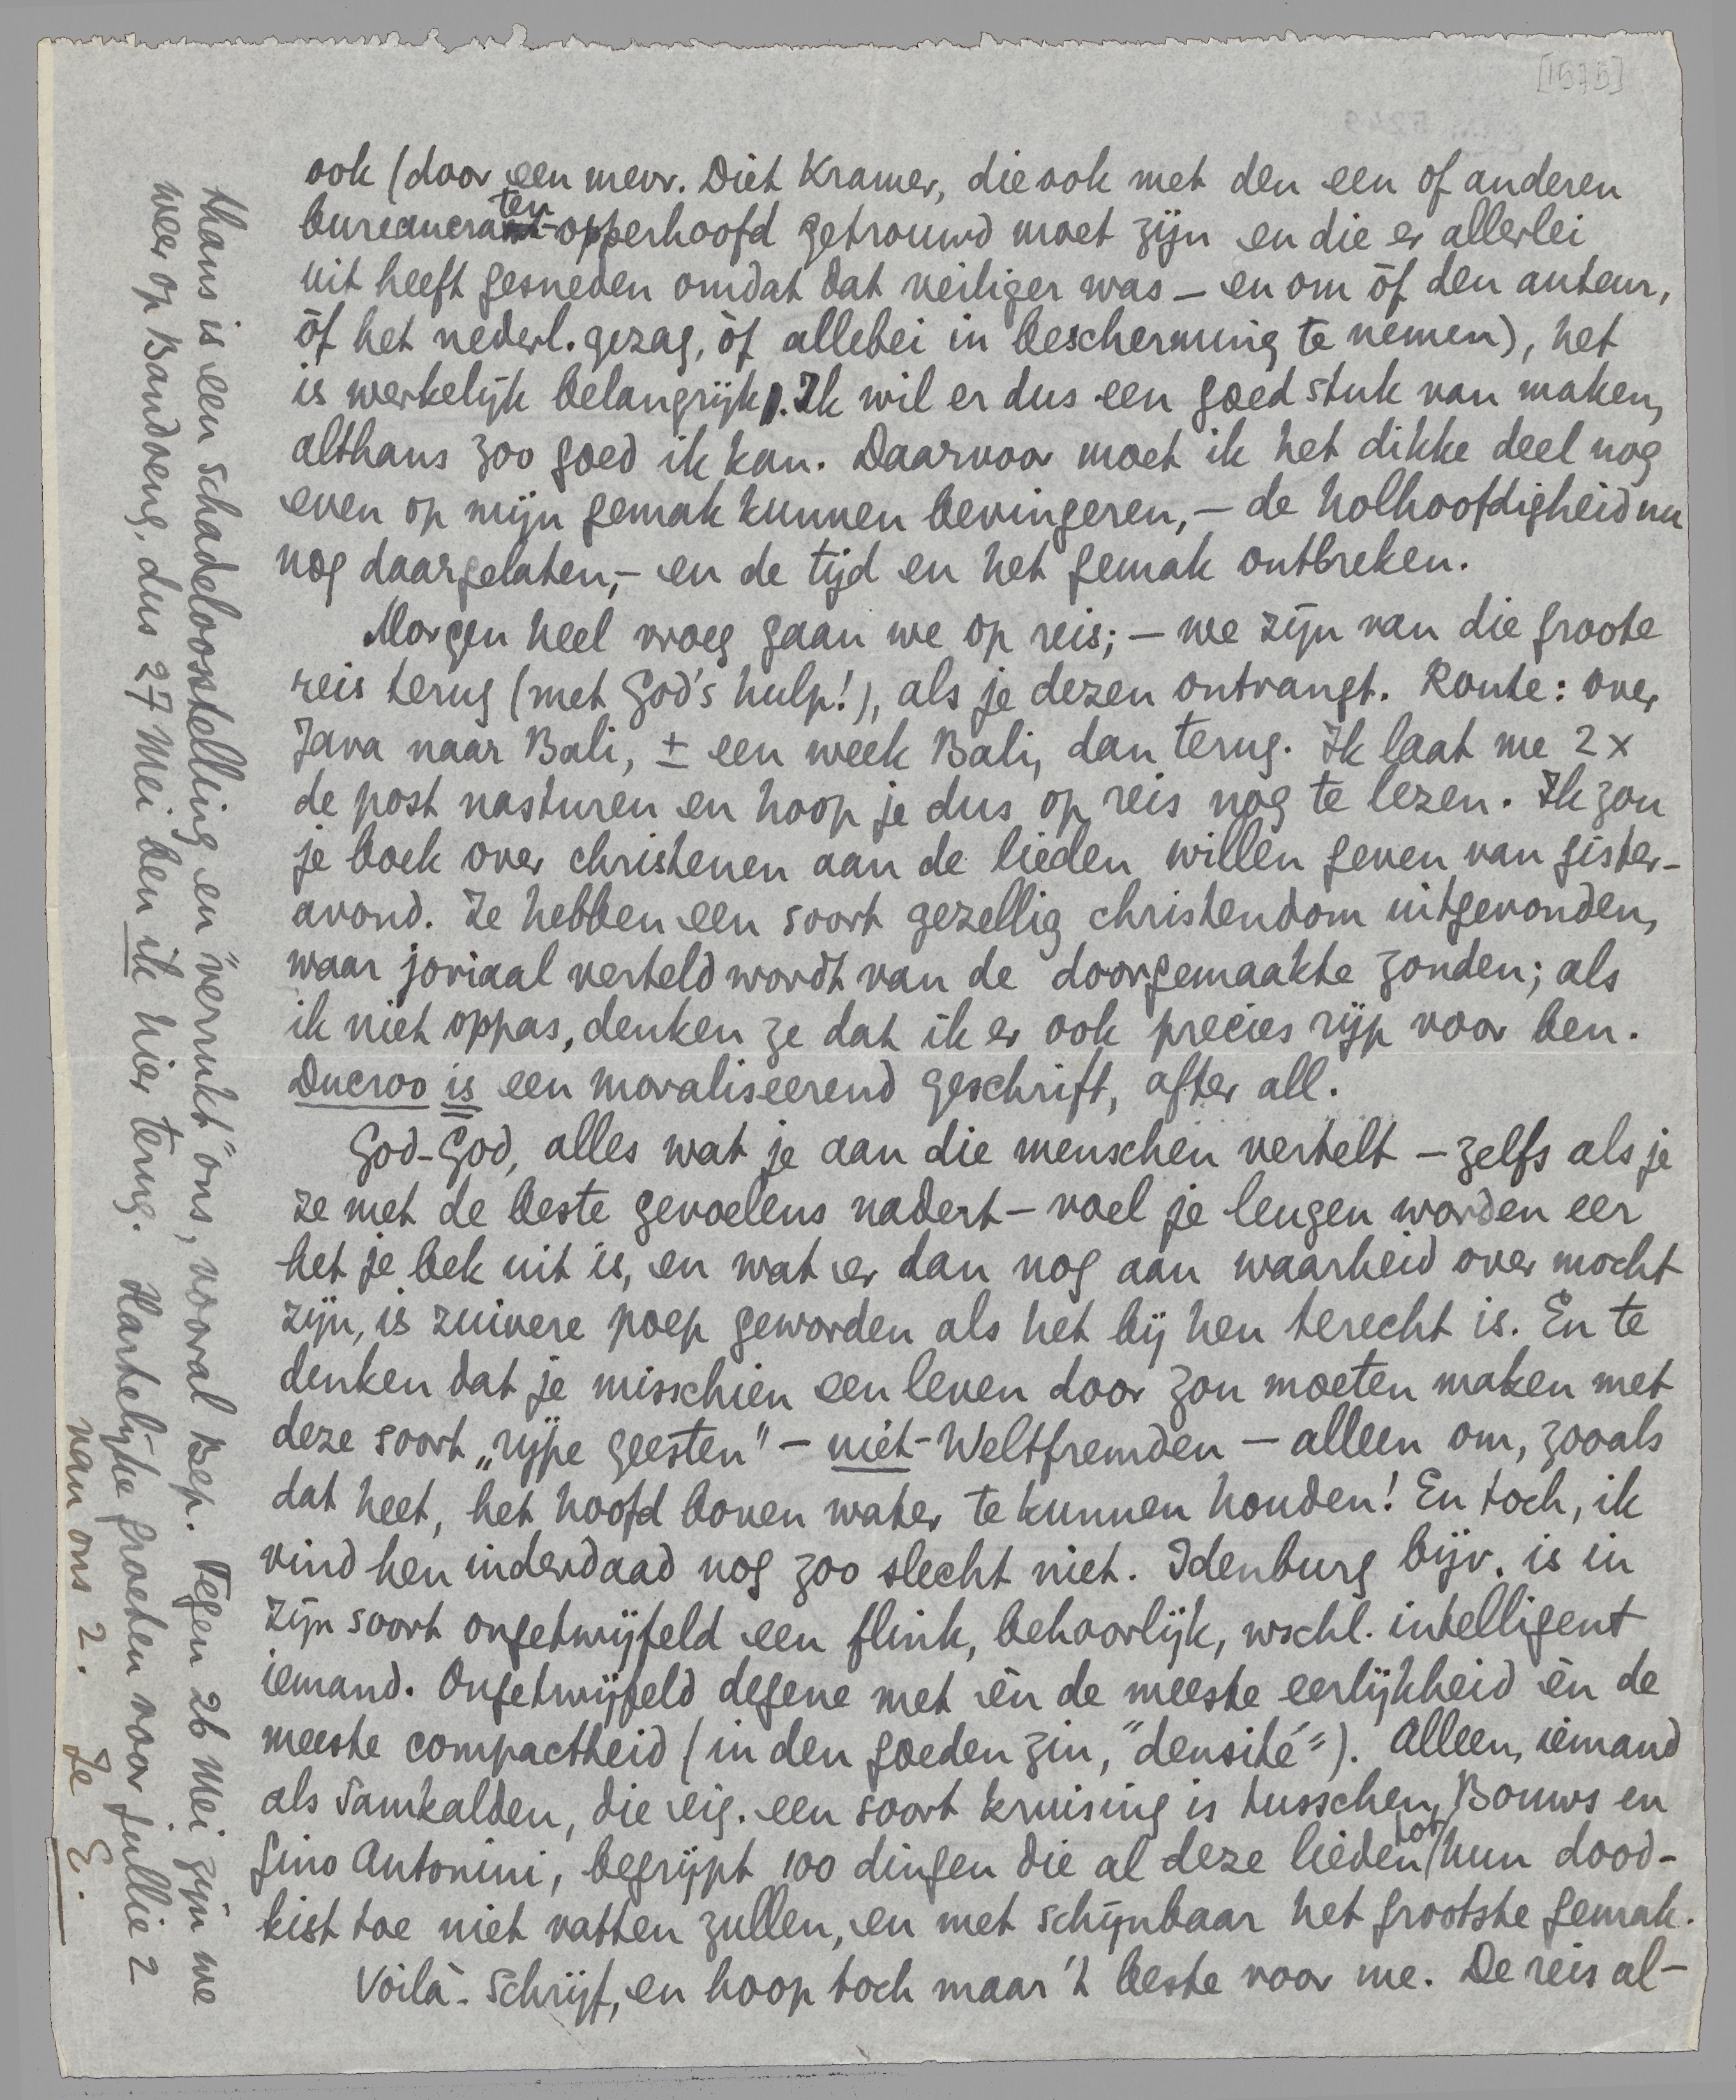 [1575]
ook (door een mevr. Diet Kramer, die ook met den een of anderen
bureaucraten-opperhoofd getrouwd moet zijn en die er allerlei
uit heeft gesneden omdat dat veiliger was – en om òf den auteur,
òf het nederl. gezag, òf allebei in bescherming te nemen), het
is werkelijk belangrijk. Ik wil er dus een goed stuk van maken,
althans zoo goed ik kan. Daarvoor moet ik het dikke deel nog
even op mijn gemak kunnen bevingeren, – de holhoofdigheid nu
nog daargelaten, – en de tijd en het gemak ontbreken.
Morgen heel vroeg gaan we op reis; – we zijn van die groote
reis terug (met God's hulp!), als je dezen ontvangt. Route: over
Java naar Bali, ± een week Bali, dan terug. Ik laat me 2 x
de post nasturen en hoop je dus op reis nog te lezen. Ik zou
je boek over christenen aan de lieden willen geven van gister-
avond. Ze hebben een soort gezellig christendom uitgevonden,
waar joviaal verteld wordt van de doorgemaakte zonden; als
ik niet oppas, denken ze dat ik er ook precies rijp voor ben.
Ducroo is een moraliseerend geschrift, after all.
God-God, alles wat je aan die menschen vertelt – zelfs als je
ze met de beste gevoelens nadert – voel je leugen worden eer
het je bek uit is, en wat er dan nog aan waarheid over mocht
zijn, is zuivere poep geworden als het bij hen terecht is. En te
denken dat je misschien een leven door zou moeten maken met
deze soort „rijpe geesten" – niet-Weltfremden – alleen om, zooals
dat heet, het hoofd boven water te kunnen houden! En toch, ik
vind hen inderdaad nog zoo slecht niet. Idenburg bijv. is in
zijn soort ongetwijfeld een flink, behoorlijk, wschl. intelligent
iemand. Ongetwijfeld degene met èn de meeste eerlijkheid èn de
meeste compactheid (in den goeden zin, "densité"). Alleen, iemand
als Samkalden, die eig. een soort kruising is tusschen Bouws en
Gino Antonini, begrijpt 100 dingen die al deze lieden tot hun dood-
kist toe niet vatten zullen, en met schijnbaar het grootste gemak.
Voilà. Schrijf, en hoop toch maar 't beste voor me. De reis al-
thans is een schadeloosstelling en "verrukt" ons, vooral Bep. Tegen 26 Mei zijn we
weer op Bandoeng, dus 27 Mei ben ik hier terug. Hartelijke groeten voor jullie 2
van ons 2. Je E.